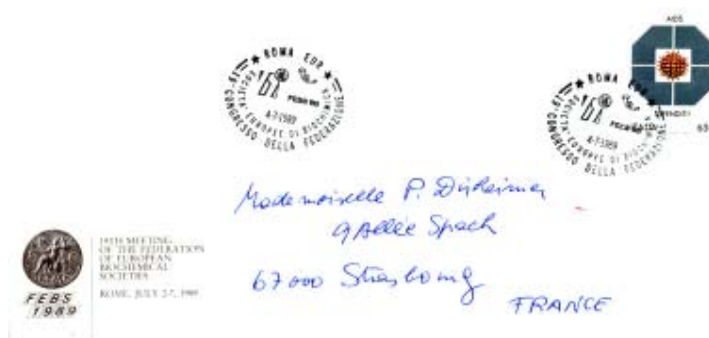 ROMA EUR
19° CONGRESSO DELLA FEDERAZIONE
SOCIETÀ EUROPEE DI BIOCHIMICA
4-7-1989
AIDS
ROMA EUR
19° CONGRESSO DELLA FEDERAZIONE
SOCIETÀ EUROPEE DI BIOCHIMICA
4-7-1989
Mademoiselle P. Dirheimer
9 Allée Spach
67000 Strasbourg
FRANCE
19TH MEETING
OF THE FEDERATION
OF EUROPEAN
BIOCHEMICAL
SOCIETIES
ROME, JULY 2-7, 1989
FEBS
1989